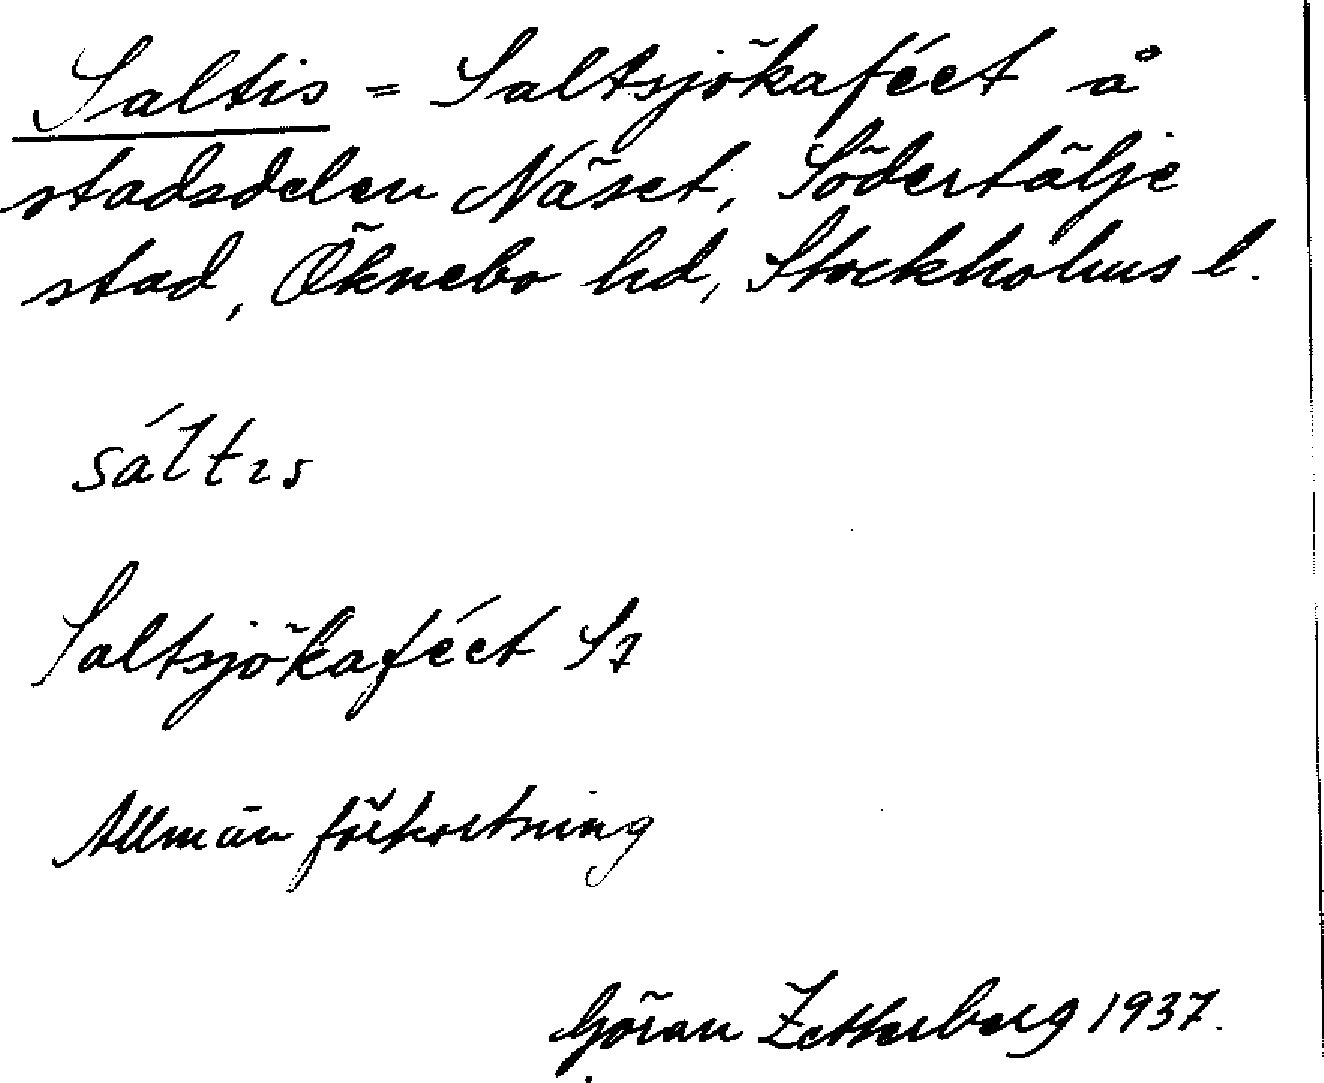 Saltis = Saltsjökaféet å
stadsdelen Näset, Södertälje
stad, Öknebo hd, Stockholms l.
sáltıs
Saltsjökaféet
Allmän förkortning
Göran Zetterberg 1937.